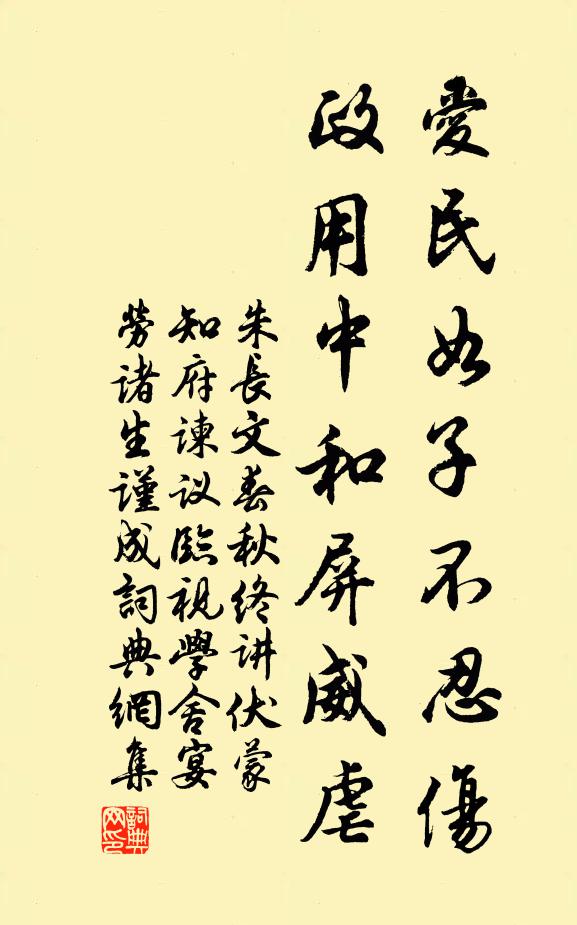 愛民如子不忍傷
政用中和屏威虐
朱長文春秋终讲伏蒙
知府谏议臨視學舍宴
劳诸生谨成詞典網集
詞典网印